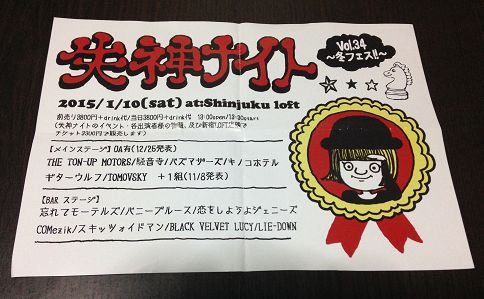 失神ナイト
Vol.34
〜冬フェス!!〜
2015/1/10(sat) at:Shinjuku loft
前売り3800円+drink代/当日3800円+drink代 13:00open/13:30start
(失神ナイトのイベント・各出演者様の物販、及び新宿LOFT店頭で
チケット3300円で販売します)
【メインステージ】OA有(12/25発表)
THE TON-UP MOTORS/軽音寺/バズマザーズ/キノコホテル
ギターウルフ/TOMOVSKY +1組(11/8発表)
【BAR ステージ】
忘れてモーテルズ/バニーブルース/恋をしようよジェニーズ
COMezik/スキッツォイドマン/BLACK VELVET LUCY/LIE-DOWN